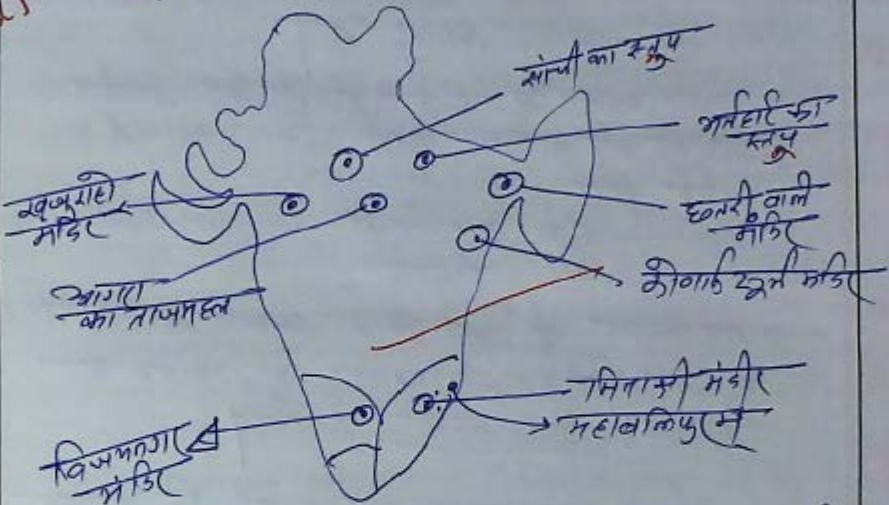 सांची का स्तूप
भरहुत का
स्तूप
खजुराहो
मंदिर
छतरी वाले
मंदिर
कोणार्क सूर्य मंदिर
आगरा
का ताजमहल
मिनाक्षी मंदीर
महाबलिपुरम्
विजयनगर
मंदिर